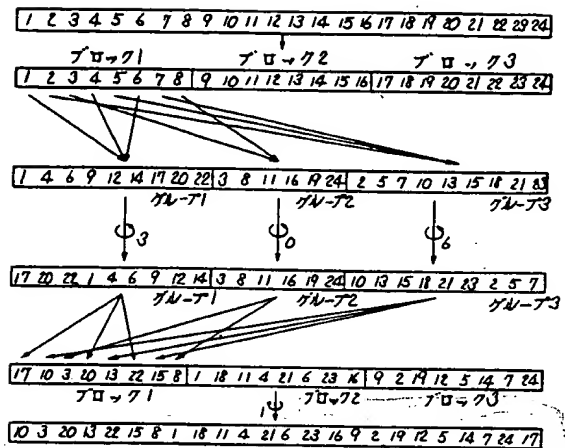 1 2 3 4 5 6 7 8 9 10 11 12 13 14 15 16 17 18 19 20 21 22 23 24
ブロック1 ブロック2 ブロック3
1 2 3 4 5 6 7 8 9 10 11 12 13 14 15 16 17 18 19 20 21 22 23 24
1 4 6 9 12 14 17 20 22 3 8 11 16 19 24 2 5 7 10 13 15 18 21 23
グループ1 グループ2 グループ3
3 0 6
17 20 22 1 4 6 9 12 14 3 8 11 16 19 24 10 13 15 18 21 23 2 5 7
グループ1 グループ2 グループ3
17 10 3 20 13 22 15 8 1 18 11 4 21 6 23 16 9 2 19 12 5 14 7 24
ブロック1 ブロック2 ブロック3
1
10 3 20 13 22 15 8 1 18 11 4 21 6 23 16 9 2 19 12 5 14 7 24 17